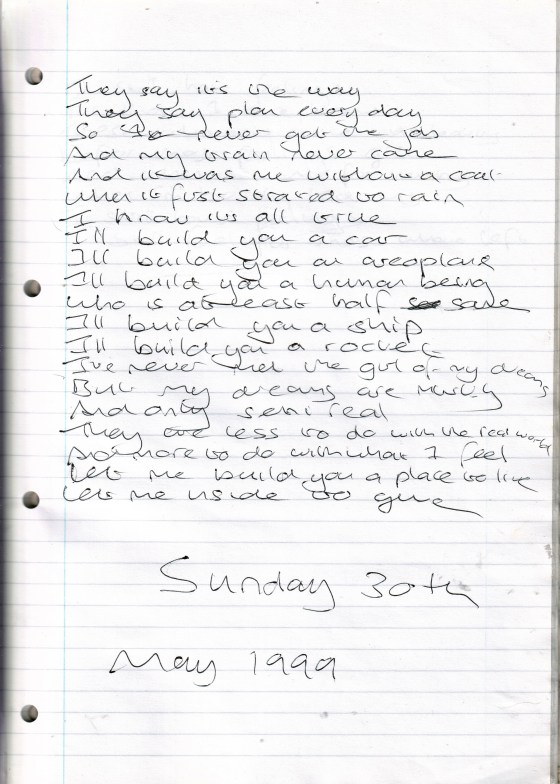 They say it's the way
They say plan every day
So I never got the job
And my train never came
And it was me without a coat
when it first strated to rain
I know it's all true
I'll build you a car
I'll build you an aeroplane
I'll build you a human being
who is at least half sane
I'll build you a ship
I'll build you a rocket
I've never met the girl of my dreams
But my dreams are murky
And only semi real
They are less to do with the real world
And more to do with what I feel
Let me build you a place to live
Let me inside to give
Sunday 30th
May 1999